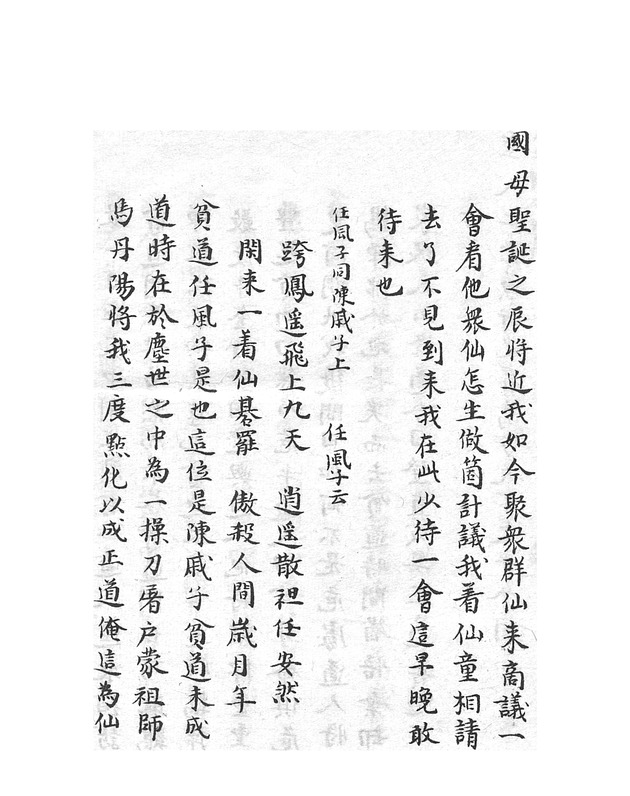 國母聖誕之辰將近我如今聚衆群仙来商議一
會看他衆仙怎生做箇計議我着仙童相請
去了不見到来我在此少待一會這早晚敢
待来也
任風子同陳戚子上 任風子云
跨鳳遥飛上九天 逍遥散袒任安然
閑来一着仙碁罷 傲殺人間歲月年
貧道任風子是也這位是陳戚子貧道未成
道時在於塵世之中為一操刀屠户蒙祖師
馬丹陽將我三度點化以成正道俺這為仙